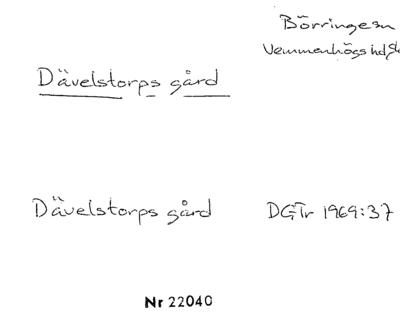 Börringe sn
Vemmenhögs hd
Dävelstorps gård
Dävelstorps gård DGTr 1969:37
Nr 22040